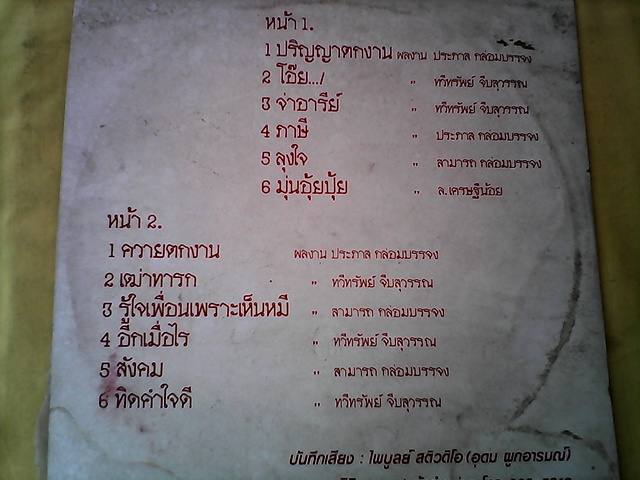 หน้า 1.
1 ปริญญาตกงาน ผลงาน ประภาส กล่อมบรรจง
2 โอ๊ย.../ " ทวีทรัพย์ จีบสุวรรณ
3 จ่าอารีย์ " ทวีทรัพย์ จีบสุวรรณ
4 ภาษี " ประภาส กล่อมบรรจง
5 ลุงใจ " สามารถ กล่อมบรรจง
6 มุ่นอุ้ยปุ้ย " ล.เศรษฐีน้อย
หน้า 2.
1 ควายตกงาน ผลงาน ประภาส กล่อมบรรจง
2 เฒ่าทารก " ทวีทรัพย์ จีบสุวรรณ
3 รู้ใจเพื่อนเพราะเห็นหมี " สามารถ กล่อมบรรจง
4 อีกเมื่อไร " ทวีทรัพย์ จีบสุวรรณ
5 สังคม " สามารถ กล่อมบรรจง
6 ทิดคำใจดี " ทวีทรัพย์ จีบสุวรรณ
บันทึกเสียง : ไพบูลย์ สติวดิโอ (อุดม ผูกอารมณ์)